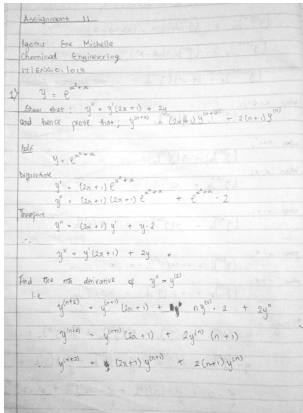 Assignment 11
Iyoma Ene Michelle
Chemical Engineering
17/ENG01/013
1) y = e^{x²+x}
Show that: y'' = y'(2x+1) + 2y
and hence prove that; y^{(n+2)} = (2x+1) y^{(n+1)} + 2(n+1) y^{(n)}
Soln
y = e^{x²+x}
y' = (2x+1) e^{x²+x}
y'' = (2x+1)(2x+1) e^{x²+x} + e^{x²+x} · 2
Therefore
y'' = (2x+1) y' + y·2
∴
y'' = y'(2x+1) + 2y
Find the nth derivative of y'' = y^{(2)}
i.e
y^{(n+2)} = y^{(n+1)} (2x+1) + n y^{(n)} · 2 + 2y^{n}
∴ y^{(n+2)} = y^{(n+1)} (2x+1) + 2y^{(n)} (n+1)
∴ y^{(n+2)} = (2x+1) y^{(n+1)} + 2(n+1) y^{(n)}